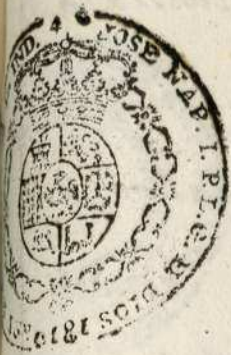 JOSE NAP. I. P. L. G. D DIOS 1810
IND. 4